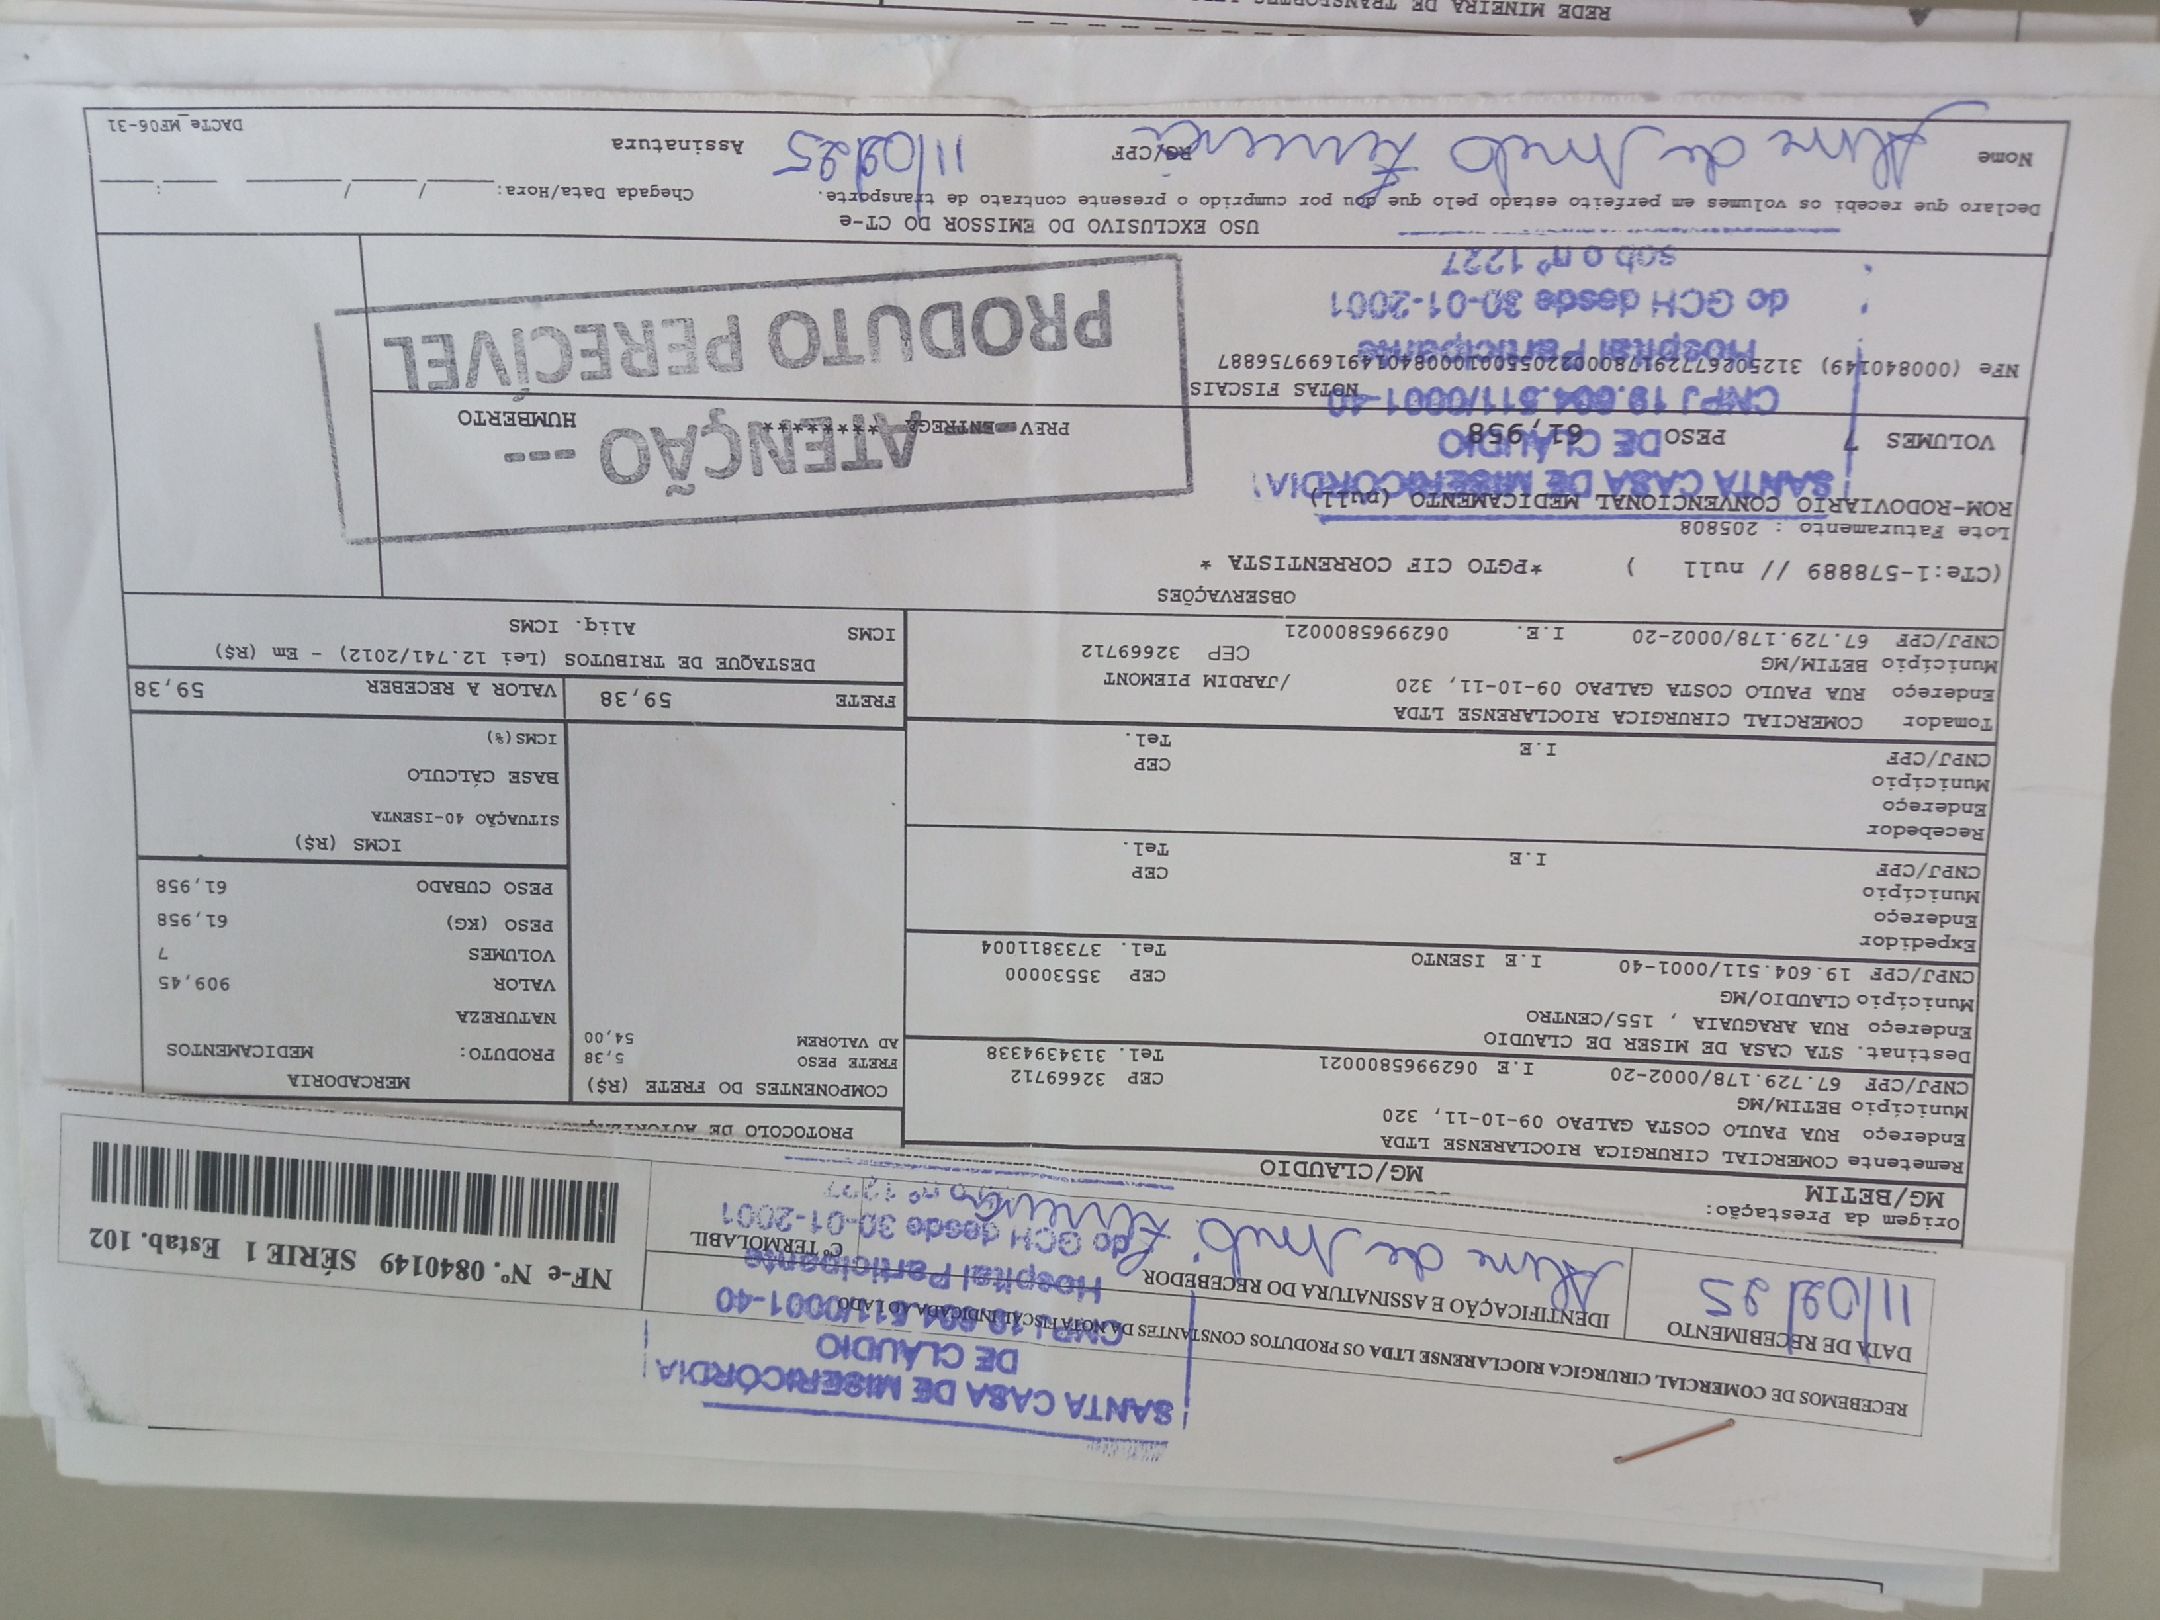 RECEBEMOS DE COMERCIAL CIRURGICA RIOCLARENSE LTDA OS PRODUTOS CONSTANTES DA NOTA FISCAL INDICADA AO LADO
DATA DE RECEBIMENTO
11/02/25
IDENTIFICAÇÃO E ASSINATURA DO RECEBEDOR
Cº TERMOLABIL
NF-e Nº. 0840149 SÉRIE 1 Estab. 102
SANTA CASA DE MISERICÓRDIA
DE CLÁUDIO
CNPJ 19.604.511/0001-40
Hospital Participante
do GCH desde 30-01-2001
nº 1227
Origem da Prestação:
MG/BETIM
MG/CLAUDIO
PROTOCOLO DE
Remetente COMERCIAL CIRURGICA RIOCLARENSE LTDA
Endereço RUA PAULO COSTA GALPAO 09-10-11, 320
Município BETIM/MG CEP 32669712
CNPJ/CPF 67.729.178/0002-20 I.E 0629965800021 Tel. 3134394338
Destinat. STA CASA DE MISER DE CLAUDIO
Endereço RUA ARAGUAIA , 155/CENTRO
Município CLAUDIO/MG CEP 35530000
CNPJ/CPF 19.604.511/0001-40 I.E ISENTO Tel. 3733811004
Expedidor
Endereço
Município CEP
CNPJ/CPF I.E Tel.
Recebedor
Endereço
Município CEP
CNPJ/CPF I.E Tel.
Tomador COMERCIAL CIRURGICA RIOCLARENSE LTDA
Endereço RUA PAULO COSTA GALPAO 09-10-11, 320 /JARDIM PIEMONT
Município BETIM/MG CEP 32669712
CNPJ/CPF 67.729.178/0002-20 I.E. 0629965800021
COMPONENTES DO FRETE (R$)
FRETE PESO 5,38
AD VALOREM 54,00
MERCADORIA
PRODUTO: MEDICAMENTOS
NATUREZA
VALOR 909,45
VOLUMES 7
PESO (KG) 61,958
PESO CUBADO 61,958
ICMS (R$)
SITUAÇÃO 40-ISENTA
BASE CÁLCULO
ICMS(%)
FRETE 59,38 VALOR A RECEBER 59,38
DESTAQUE DE TRIBUTOS (Lei 12.741/2012) - Em (R$)
ICMS Aliq. ICMS
OBSERVAÇÕES
(CTe:1-578889 // null ) *PGTO CIF CORRENTISTA *
Lote Faturamento : 205808
ROM-RODOVIARIO CONVENCIONAL MEDICAMENTO (null)
VOLUMES 7 PESO 61,958
PREV ENTREGA ******** HUMBERTO
NOTAS FISCAIS
NFe (000840149) 31250267729178000220550010008401491699756887
SANTA CASA DE MISERICÓRDIA
DE CLÁUDIO
CNPJ 19.604.511/0001-40
Hospital Participante
do GCH desde 30-01-2001
sob o nº 1227
ATENÇÃO ---
PRODUTO PERECÍVEL
USO EXCLUSIVO DO EMISSOR DO CT-e
Declaro que recebi os volumes em perfeito estado pelo que dou por cumprido o presente contrato de transporte.
Chegada Data/Hora: ____/____/______ ____:____
Nome
RG/CPF
11/02/25
Assinatura
DACTe_MF06-31
REDE MINEIRA DE TRANSPORTES